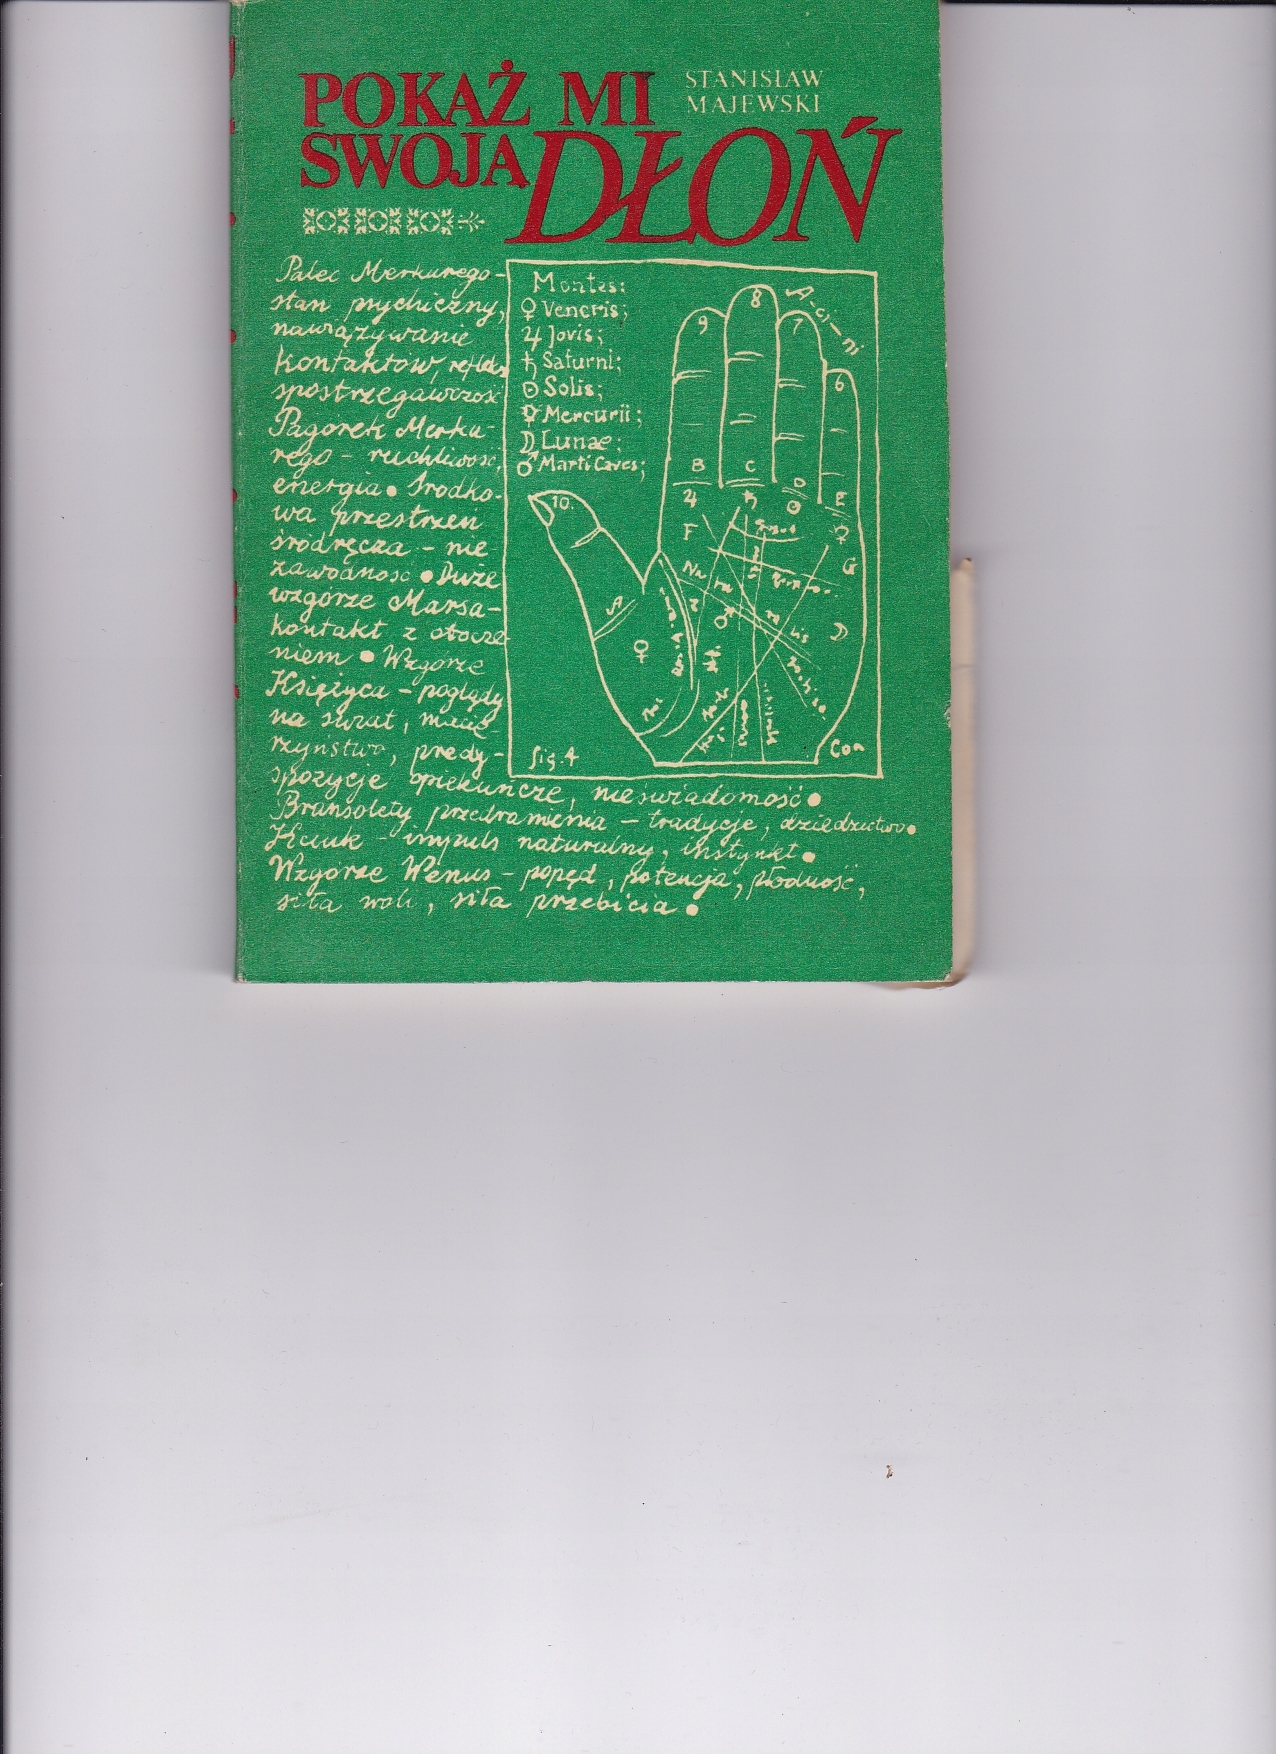 POKAŻ MI
SWOJĄ DŁOŃ
STANISŁAW
MAJEWSKI
Palec Merkurego-
stan psychiczny,
nawiązywanie
kontaktów, refleks
spostrzegawczość
Pagórek Merku-
rego - ruchliwość,
energia • Środko-
wa przestrzeń
śródręcza - nie
zawodność • Duże
wzgórze Marsa-
kontakt z otocze-
niem • Wzgórze
Księżyca - poglądy
na świat, macie-
rzyństwo, predy-
spozycje opiekuńcze, nieświadomość •
Bransolety przedramienia - tradycje, dziedzictwo •
Kciuk - impuls naturalny, instynkt •
Wzgórze Wenus - popęd, potencja, płodność,
siła woli, siła przebicia •
Montes:
♀ Veneris;
♃ Jovis;
♄ Saturni;
☉ Solis;
☿ Mercurii;
☽ Lunae;
♂ Marti Caves;
9
8
7
6
10.
B
C
D
E
♃
♄
☉
☿
F
G
A
♀
♂
☽
fig. 4
Con